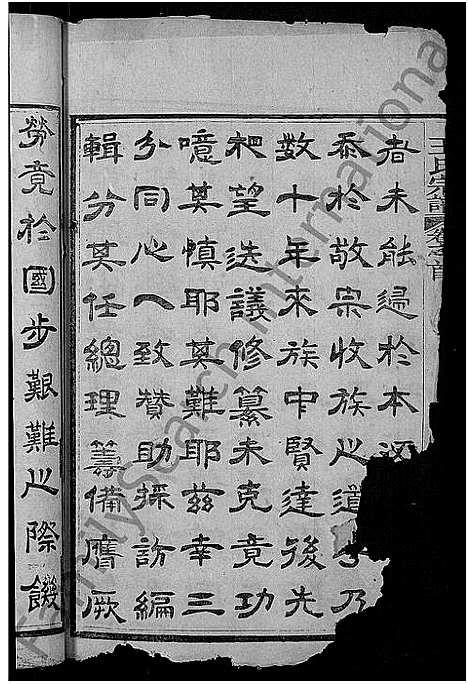 王氏宗譜 卷之首
者未能歸於本
忝於敬宗收族之道乃
數十年來族中賢達後先
相望迭議修纂未克竟功
噫其慎耶其難耶茲幸三
分同心一致贊助採訪編
輯分其任總理籌備膺厥
勞竟於國步艱難之際饑
FamilySearch International